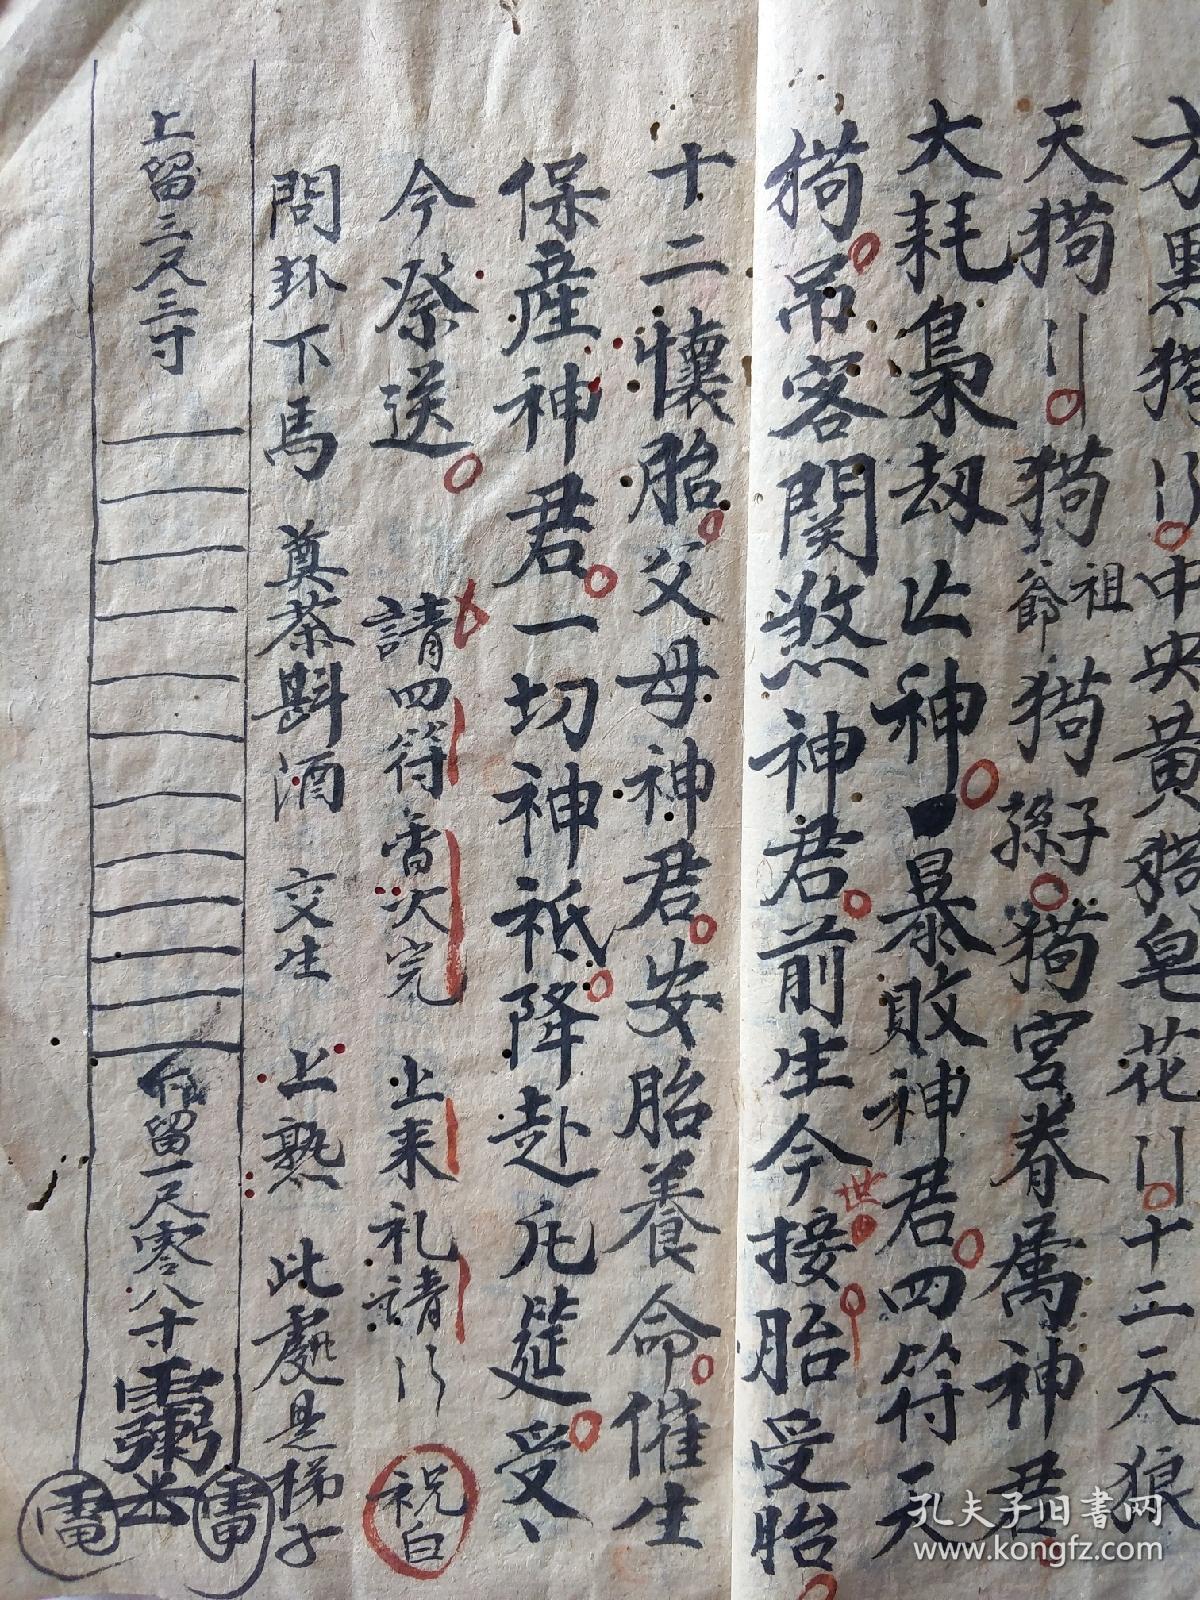 方黑猫〢中央黄猫皂花〢十二天狼
天猫〢猫祖爺猫子孫猫宫眷属神君
大耗梟刼亡神暴敗神君四符天
狗吊客関煞神君前生今世接胎受胎
十二懷胎父母神君安胎養命催生
保産神君一切神祇降赴凡筵受
今祭送 請四符香次完 上来礼請 祝白
問卦下馬 奠茶斟酒 交生 上熟 此處是梯子
上留三尺三寸
留一尺零八寸
孔夫子旧书网
www.kongfz.com